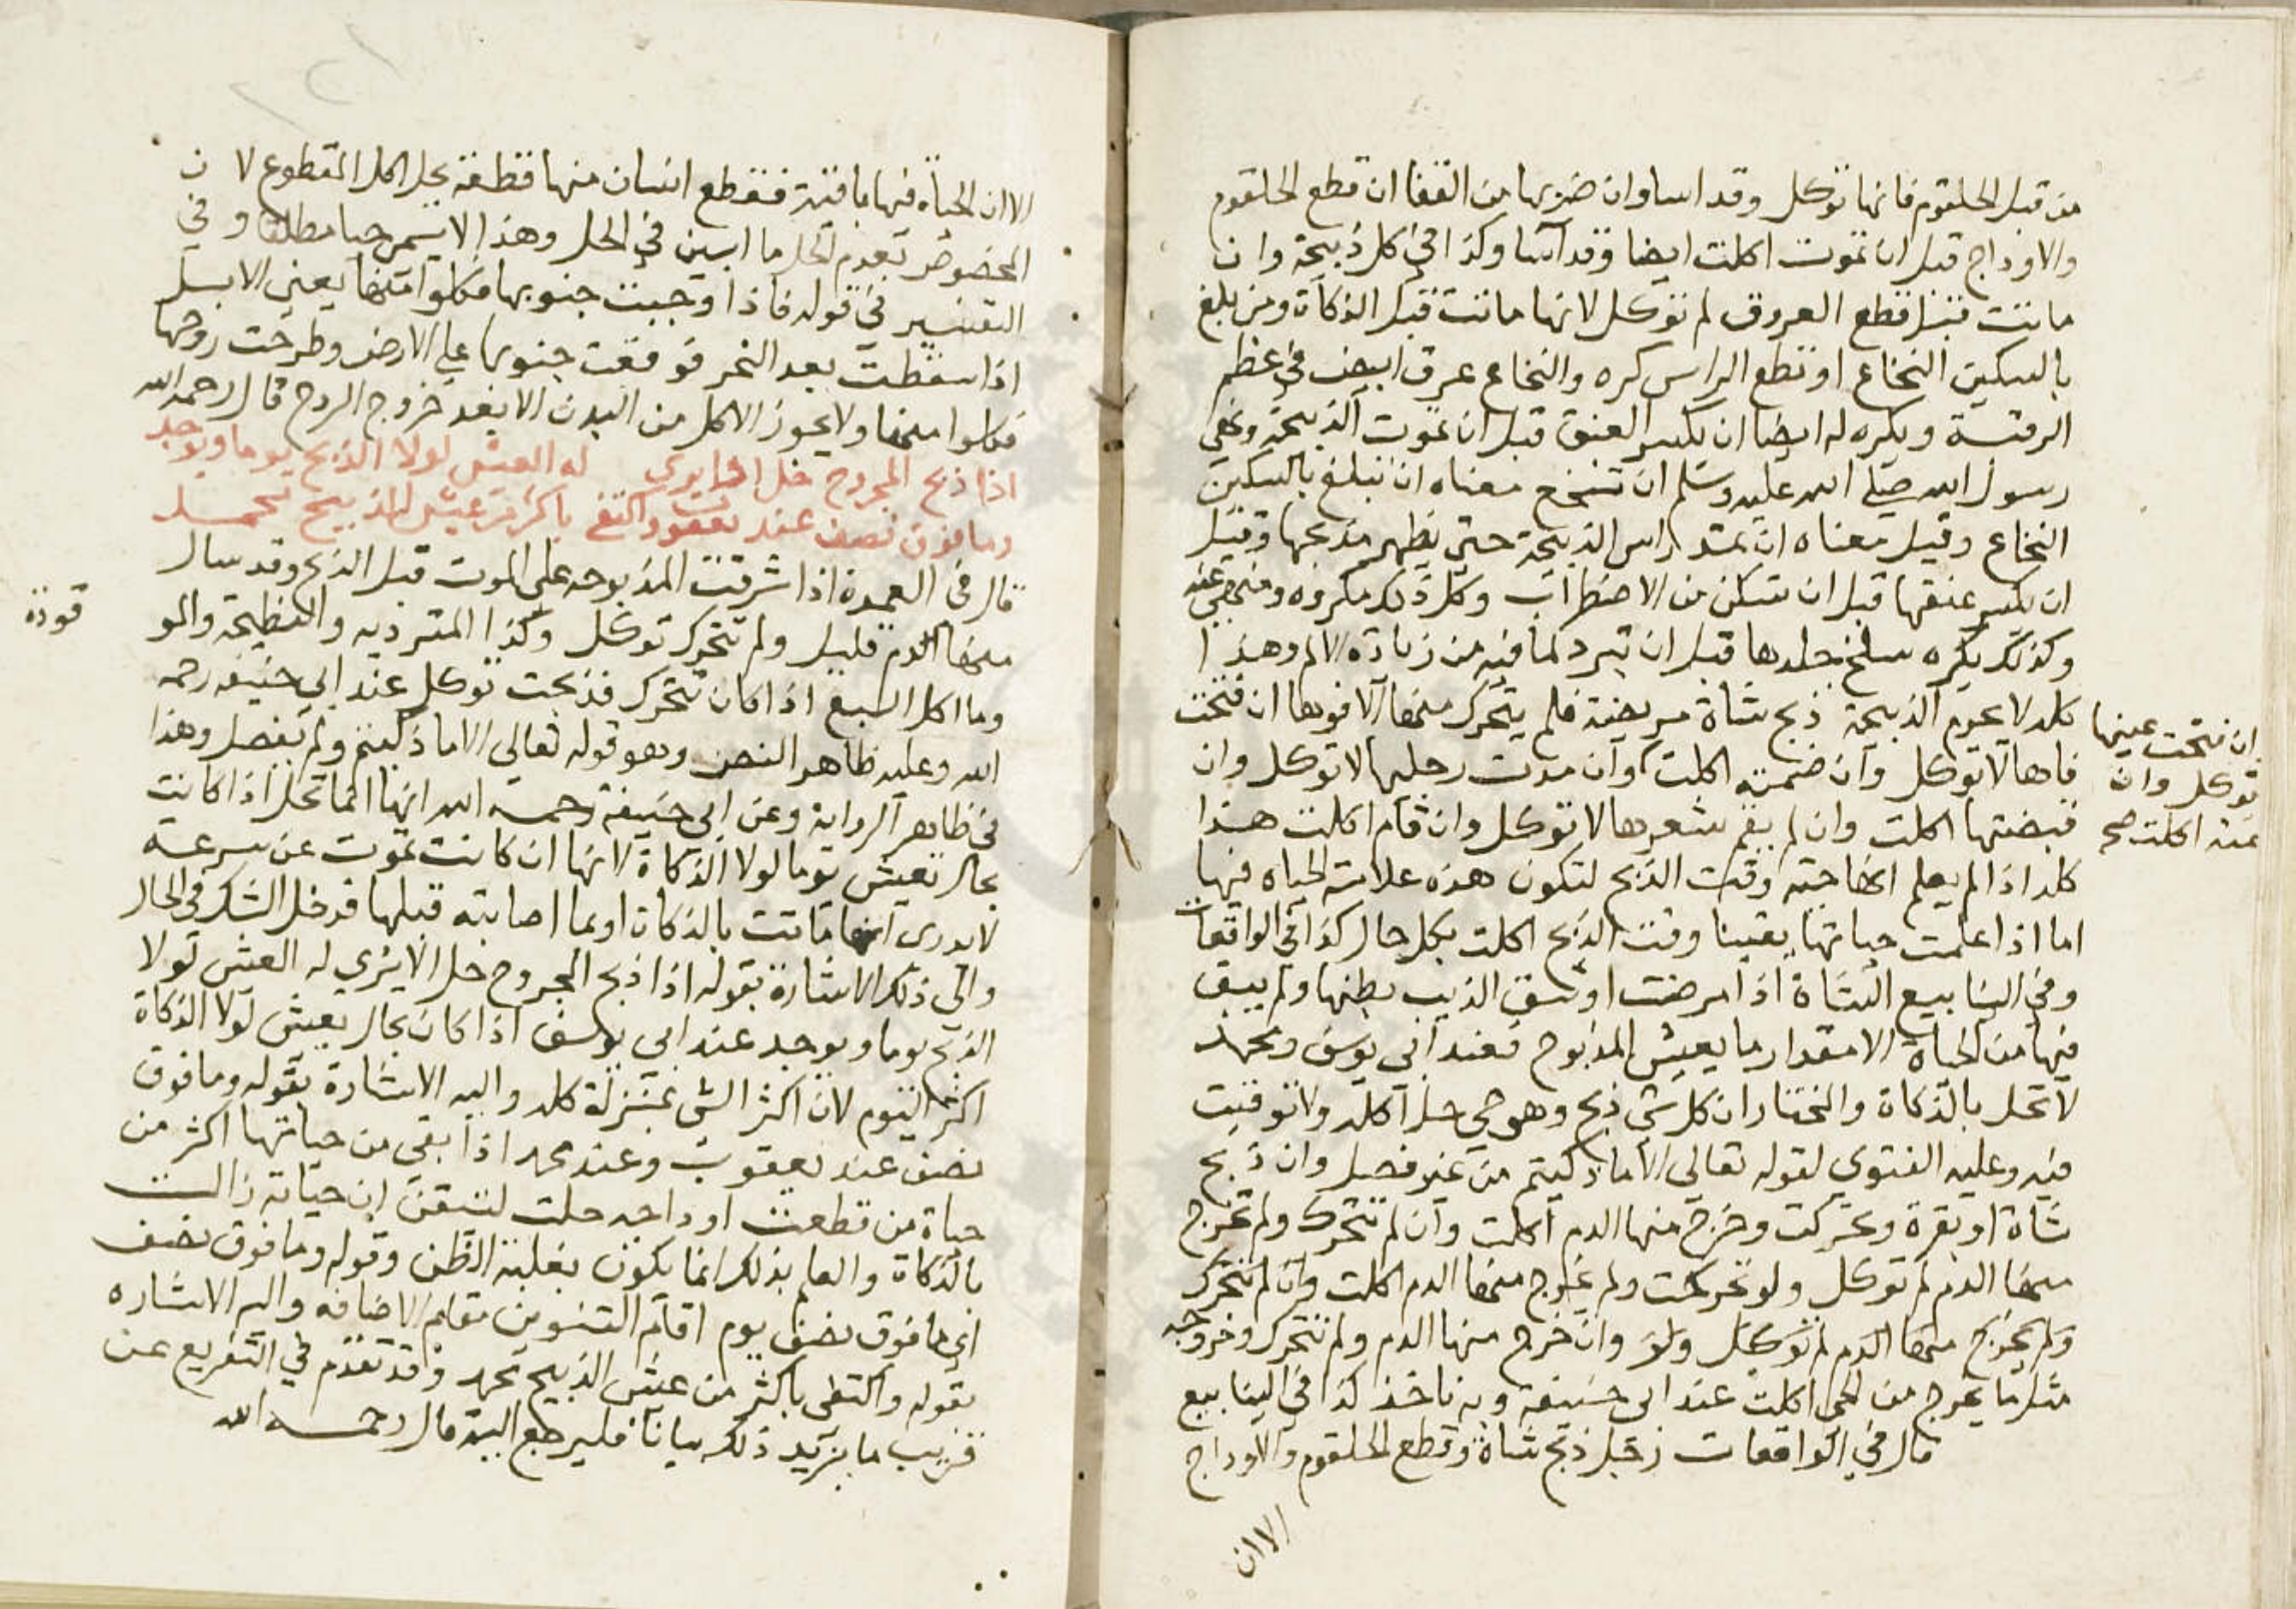 من قبل الحلقوم فانها توكل وقد اسا وان ضربها من القفا ان قطع الحلقوم
والاوداج قبل ان تموت اكلت ايضا وقد اسا وكذا في كل ذبيحة وان
ماتت قبل قطع العروق لم توكل لانها ماتت قبل الذكاة ومن بلغ
بالسكين النخاع او قطع الراس كره والنخاع عرق ابيض في عظم
الرقبة ويكره له ايضا ان يكسر العنق قبل ان تموت الذبيحة ونهي
رسول الله صلى الله عليه وسلم ان تنخع معناه ان يبلغ بالسكين
النخاع وقيل معناه ان يمد راس الذبيحة حتى يظهر مذبحها وقيل
ان يكسر عنقها قبل ان تسكن من الاضطراب وكل ذلك مكروه ومنهي عنه
وكذلك يكره سلخ جلدها قبل ان تبرد لما فيه من زيادة الالم وهذا
كله لا يحرم الذبيحة ذبح شاة مريضة فلم يتحرك منها الا فوها ان فتحت
فاها لا توكل وان ضمته اكلت وان مدت رجليها لا توكل وان
قبضتها اكلت وان لم يقم شعرها لا توكل وان قام اكلت هذا
كله اذا لم يعلم انها حية وقت الذبح لتكون هذه علامة الحياه فيها
اما اذا علمت حياتها يقينا وقت الذبح اكلت بكل حال كذا في الواقعات
وفي الينابيع الشاة اذا مرضت او شق الذيب بطنها ولم يبق
فيها من الحياة الا مقدار ما يعيش المذبوح فعند ابي يوسف ومحمد
لا تحل بالذكاة والمختار ان كل شي ذبح وهو حي حل اكله ولا توقيت
فيه وعليه الفتوى لقوله تعالى الا ما ذكيتم من غير فصل وان ذبح
شاة او بقرة وتحركت وخرج منها الدم اكلت وان لم تتحرك ولم تخرج
منها الدم لم توكل ولو تحركت ولم يخرج منها الدم اكلت وان لم تتحرك
ولم يخرج منها الدم لم توكل وان خرج منها الدم ولم تتحرك وخروجه
مثل ما يخرج من الحي اكلت عند ابي حنيفة وبه ناخذ كذا في الينابيع
قال في الواقعات رجل ذبح شاة وقطع الحلقوم والاوداج
الا ان
ان فتحت عينها
توكل وان
غمته اكلت صح
الا ان الحياة فيها باقية فقطع انسان منها قطعة يحل اكل المقطوع لان
المخصوص بعدم الحل ما ابين في الحل وهذا لا يسمى حيا مطلقا وفي
التفسير في قوله فاذا وجبت جنوبها فكلوا منها يعني الابل
اذا سقطت بعد النحر فوقعت جنوبها على الارض وطرحت روحها
فكلوا منها ولا يجوز الاكل من البدن الا بعد خروج الروح قال رحمه الله
اذا ذبح المجروح حل اذا يرى له العيش لولا الذبح يوما ويوجد
وما فوق نصف عند يعقوب واكتفى باكثر من عيش الذبيح محمد
قال في العمدة اذا اشرفت المذبوحه على الموت قبل الذبح وقد سال
منها الدم قليل ولم تتحرك توكل وكذا المتردية والنطيحة والمو
قوذة
وما اكل السبع اذا كان تتحرك فذبحت توكل عند ابي حنيفه رحمه
الله وعليه ظاهر النص وهو قوله تعالى الا ما ذكيتم ولم يفصل وهذا
في ظاهر الرواية وعن ابي حنيفة رحمه الله انها انما تحل اذا كانت
بحال تعيش يوما لولا الذكاة لانها ان كانت تموت عن سرعة
لا يدرى انها ماتت بالذكاة او بما اصابته قبلها فدخل الشك في الحال
والى ذلك الاشارة بقوله اذا ذبح المجروح حل الا يرى له العيش لولا
الذبح يوما ويوجد عند ابي يوسف اذا كان بحال يعيش لولا الذكاة
اكثر اليوم لان اكثر الشي بمنزلة كله واليه الاشارة بقوله وما فوق
نصف عند يعقوب وعند محمد اذا بقى من حياتها اكثر من
حياة من قطعت اوداجه حلت لتيقن ان حياته زالت
بالذكاة والعلم بذلك انما يكون بغلبة الظن وقوله وما فوق نصف
اي ما فوق نصف يوم اقام التنوين مقام الاضافه واليه الاشاره
بقوله واكتفى باكثر من عيش الذبيح محمد وقد تقدم في التفريع عن
قريب ما يزيد ذلك بيانا فليرجع اليه قال رحمه الله